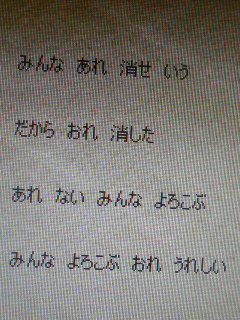 みんな あれ 消せ いう
だから おれ 消した
あれ ない みんな よろこぶ
みんな よろこぶ おれ うれしい